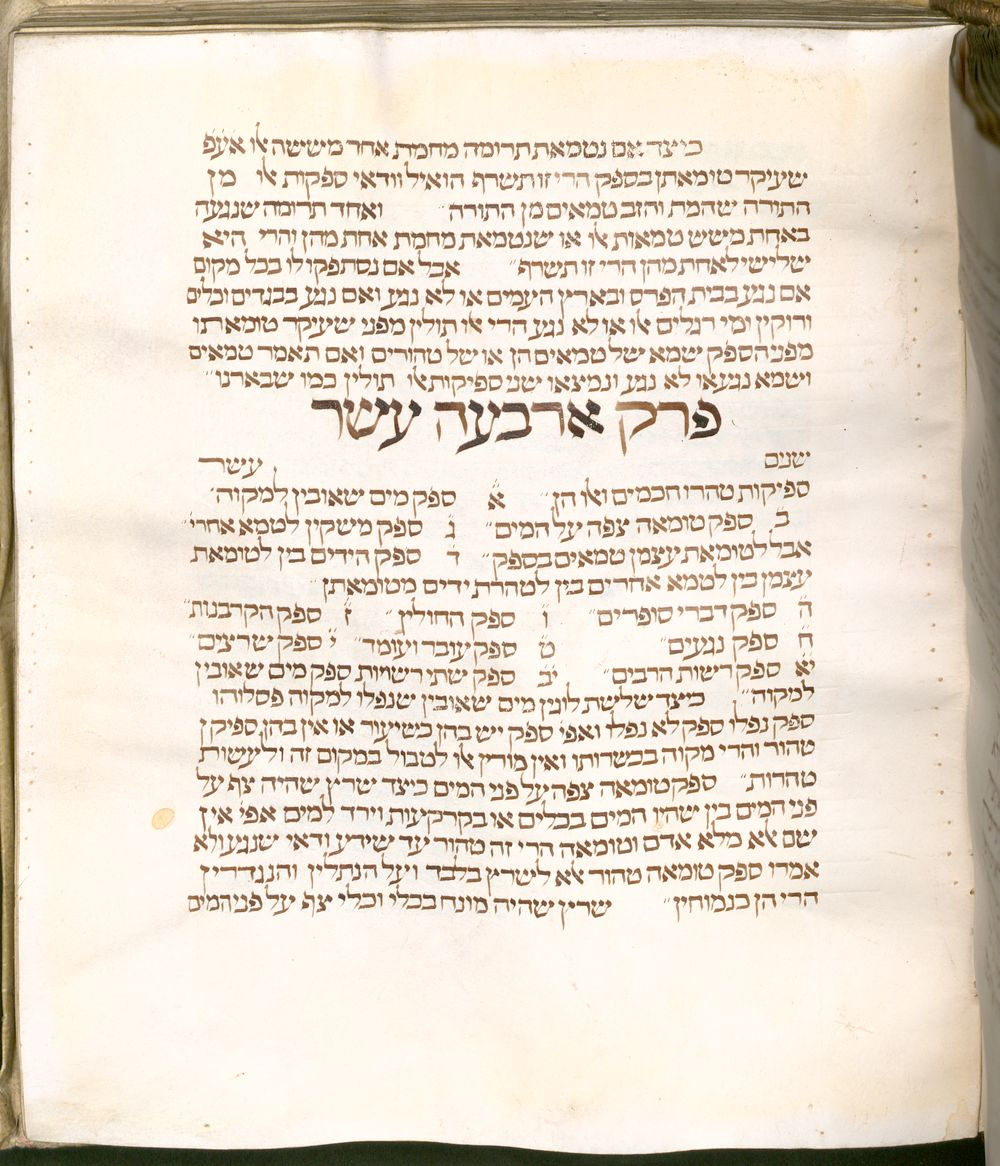 כיצד אם נטמאת תרומה מחמת אחד מששה אלו אעפ
שעיקר טומאתן בספק הרי זו תשרף הואיל וודאי ספקות אלו מן
התורה שהמת והזב טמאים מן התורה ואחד תרומה שנגעה
באחת משש טמאות אלו או שנטמאת מחמת אחת מהן והרי היא
שלישי לאחת מהן הרי זו תשרף אבל אם נסתפקו לו בכל מקום
אם נגע בבית הפרס ובארץ העמים או לא נגע ואם נגע בבגדים וכלים
ורוקין ומי רגלים אלו או לא נגע הרי אלו תולין מפני שעיקר טומאתו
מפני הספק שמא של טמאים הן או של טהורים ואם תאמר טמאים
ושמא נגע או לא נגע ונמצאו שני ספיקות אלו תולין כמו שבארנו
פרק ארבעה עשר
שנים עשר
ספיקות טהרו חכמים ואלו הן א ספק מים שאובין למקוה
ב ספק טומאה צפה על המים ג ספק משקין לטמא אחרי
אבל לטומאת עצמן טמאים בספק ד ספק הידים בין לטומאת
עצמן בין לטמא אחרים בין לטהרת ידים מטומאתן
ה ספק דברי סופרים ו ספק החולין ז ספק הקרבנות
ח ספק נגעים ט ספק עובר ועומד י ספק שרצים
יא ספק רשות הרבים יב ספק שתי רשויות ספק מים שאובין
למקוה כיצד שלשת לוגין מים שאובין שנפלו למקוה פסלוהו
ספק נפלו ספק לא נפלו ואפי ספק יש בהן כשיעור או אין בהן ספיקן
טהור והרי מקוה בכשרותו ואין מורין לו לטבול במקום זה ולעשות
טהרות ספק טומאה צפה על פני המים כיצד שרץ שהיה צף על
פני המים בין שהיו המים בכלים או בקרקעות וירד למים אפי אין
שם אלא מלא אדם וטומאה הרי זה טהור עד שידע ודאי שנגע ולא
אמרו ספק טומאה טהור אלא לשרץ בלבד ועל הנתלין והנגררין
הרי הן כנמוחין שרץ שהיה מונח בכלי וכלי צף על פני המים